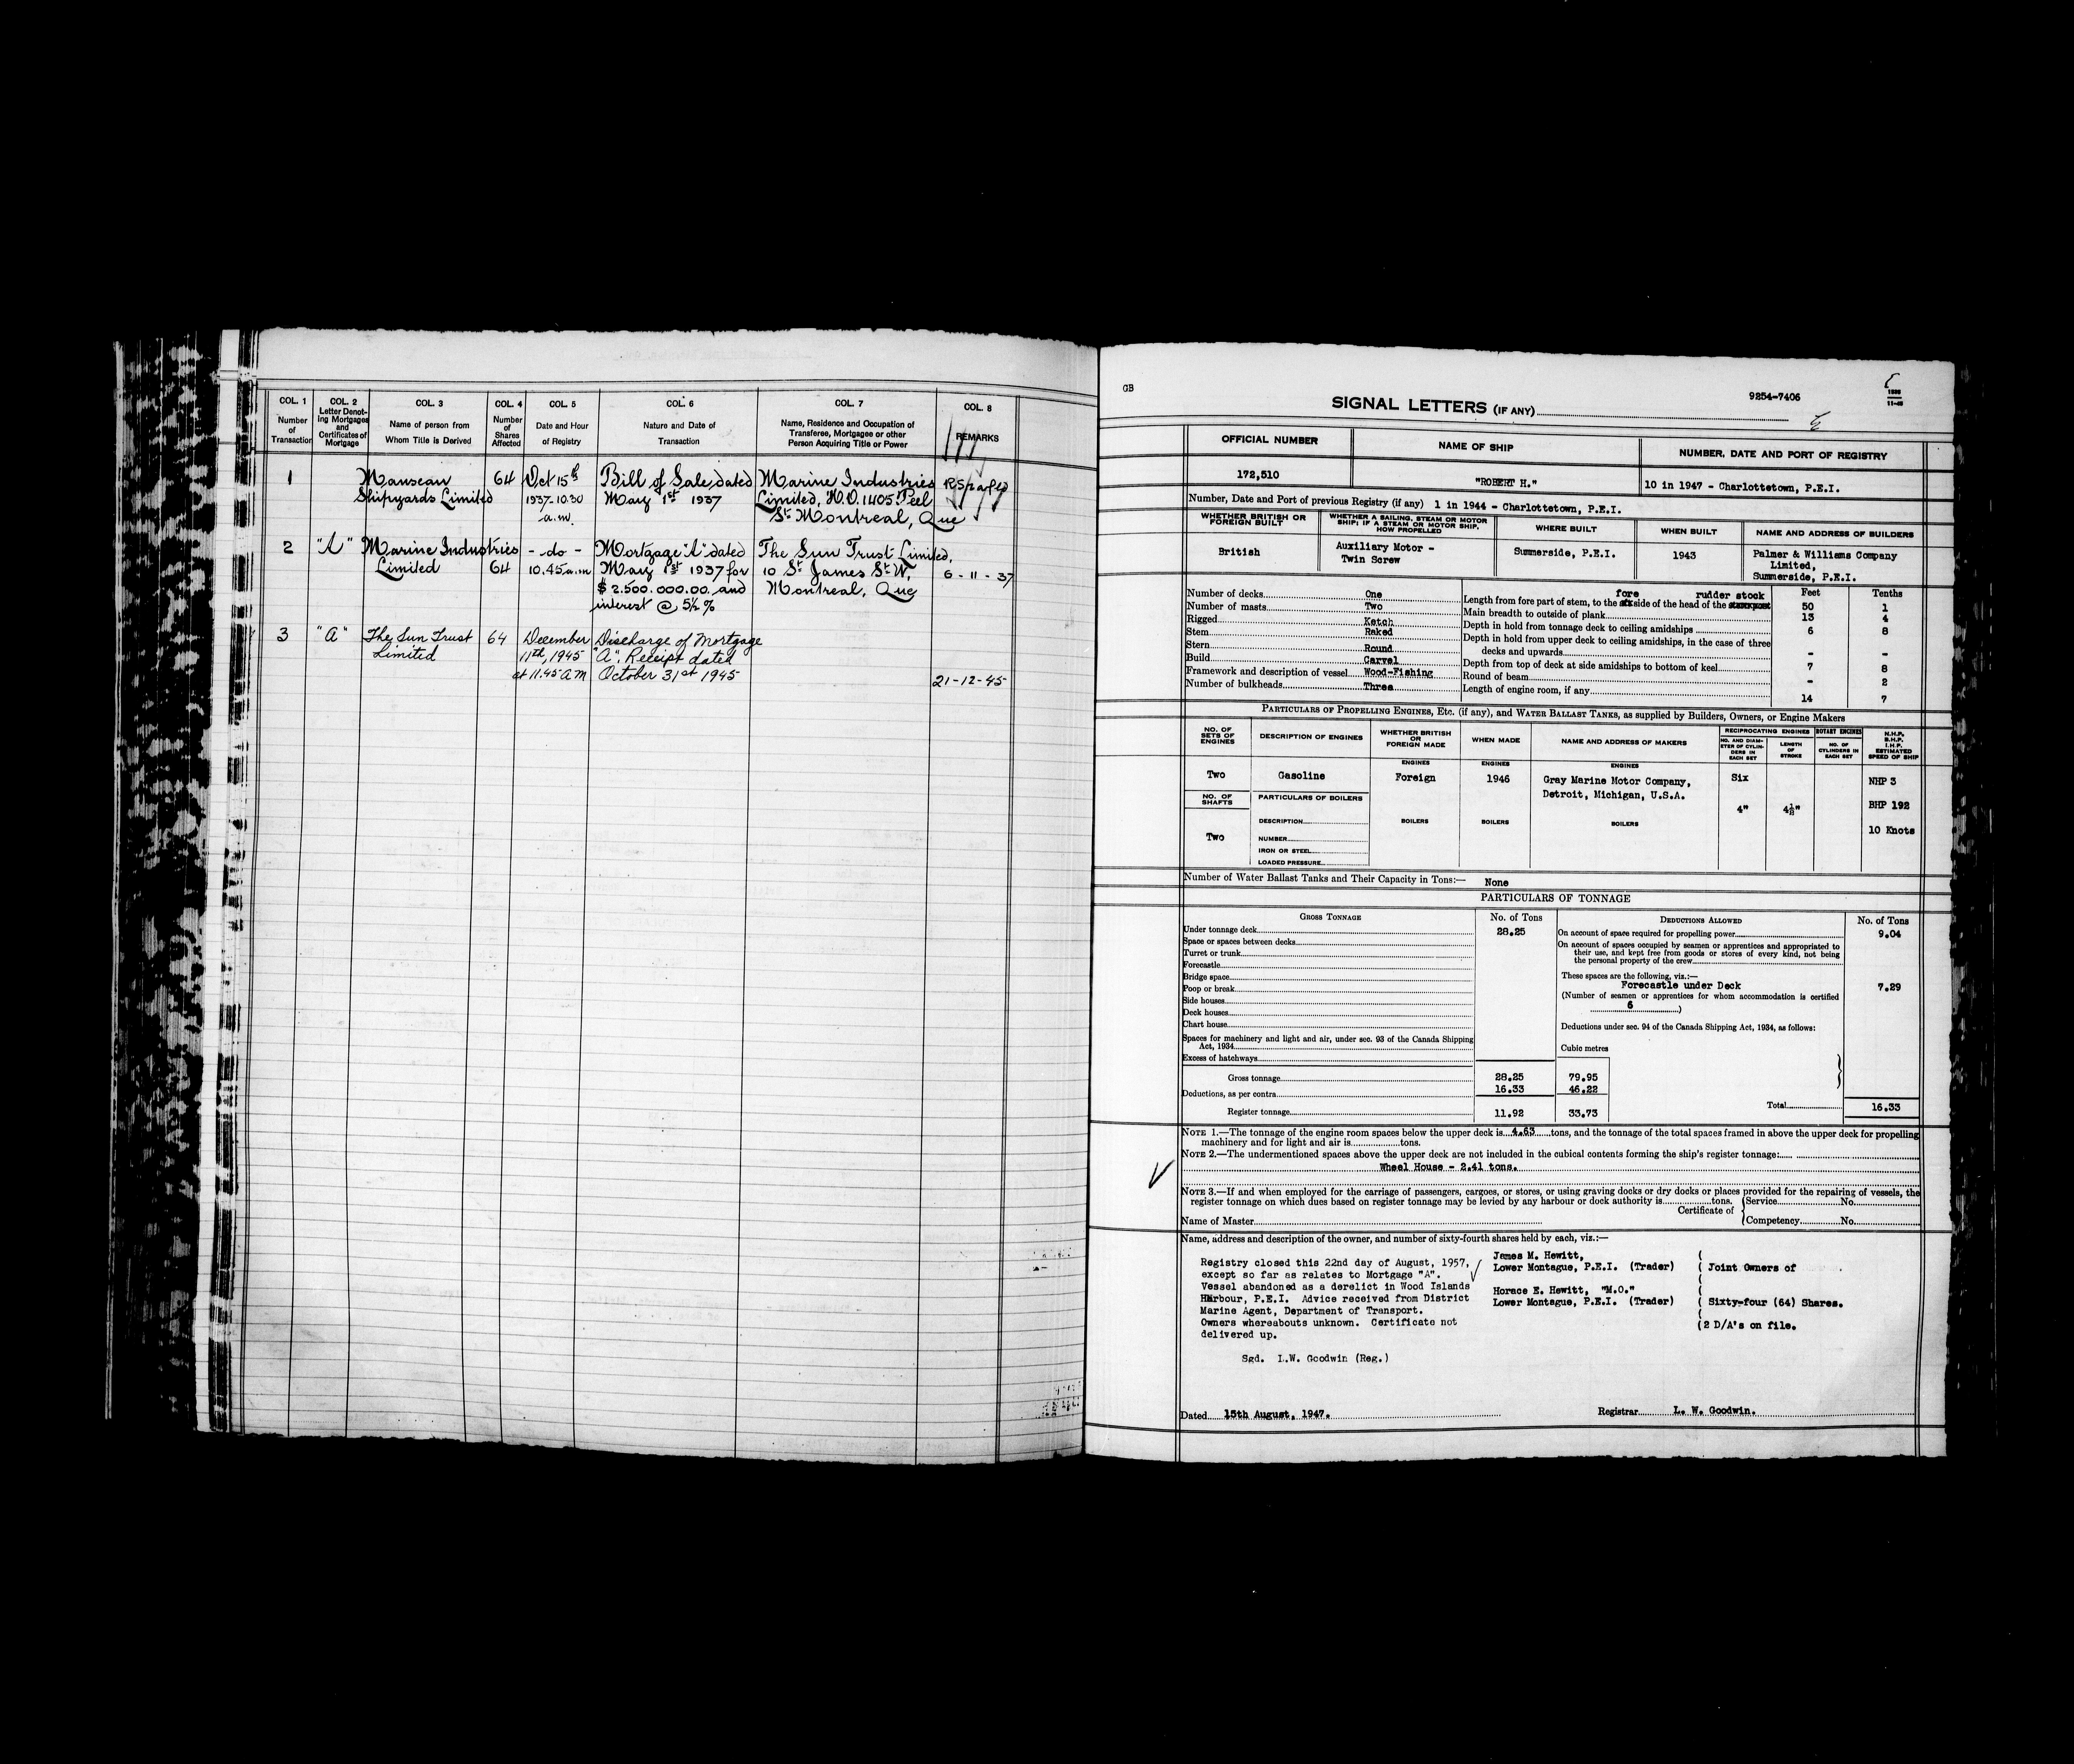 COL. 1 COL. 2 COL. 3 COL. 4 COL. 5 COL. 6 COL. 7 COL. 8
Number of Transaction
Letter Denoting Mortgages and Certificates of Mortgage
Name of person from Whom Title is Derived
Number of Shares Affected
Date and Hour of Registry
Nature and Date of Transaction
Name, Residence and Occupation of Transferee, Mortgagee or other Person Acquiring Title or Power
REMARKS
1 Manseau 64 Oct 15th Bill of Sale, dated Marine Industries
Shipyards Limited 1937-10.30 May 1st 1937 Limited, H.O. 1405 Peel
a.m. St Montreal, Que
2 "A" Marine Industries - do - Mortgage "A" dated The Sun Trust Limited,
Limited 64 10.45 a.m May 1st 1937 for 10 St. James St. W, 6-11-37
$2.500.000.00. and Montreal, Que
interest @ 5½ %
3 "A" The Sun Trust 64 December Discharge of Mortgage
Limited 11th, 1945 "A". Receipt dated
at 11.45 AM October 31st 1945 21-12-45
GB
9254-7406
SIGNAL LETTERS (IF ANY)
OFFICIAL NUMBER NAME OF SHIP NUMBER, DATE AND PORT OF REGISTRY
172,510 "ROBERT H." 10 in 1947 - Charlottetown, P.E.I.
Number, Date and Port of previous Registry (if any) 1 in 1944 - Charlottetown, P.E.I.
WHETHER BRITISH OR FOREIGN BUILT
WHETHER A SAILING, STEAM OR MOTOR SHIP; IF A STEAM OR MOTOR SHIP, HOW PROPELLED
WHERE BUILT WHEN BUILT NAME AND ADDRESS OF BUILDERS
British Auxiliary Motor - Summerside, P.E.I. 1943 Palmer & Williams Company
Twin Screw Limited,
Summerside, P.E.I.
Feet Tenths
Number of decks One
Number of masts Two
Rigged Ketch
Stem Raked
Stern Round
Build Carvel
Framework and description of vessel Wood-Fishing
Number of bulkheads Three
fore rudder stock
Length from fore part of stem, to the side of the head of the 50 1
Main breadth to outside of plank 13 4
Depth in hold from tonnage deck to ceiling amidships 6 8
Depth in hold from upper deck to ceiling amidships, in the case of three
decks and upwards - -
Depth from top of deck at side amidships to bottom of keel 7 8
Round of beam - 2
Length of engine room, if any 14 7
PARTICULARS OF PROPELLING ENGINES, ETC. (if any), and WATER BALLAST TANKS, as supplied by Builders, Owners, or Engine Makers
NO. OF SETS OF ENGINES
DESCRIPTION OF ENGINES
WHETHER BRITISH OR FOREIGN MADE
WHEN MADE
NAME AND ADDRESS OF MAKERS
RECIPROCATING ENGINES ROTARY ENGINES
NO. AND DIAMETER OF CYLINDERS IN EACH SET
LENGTH OF STROKE
NO. OF CYLINDERS IN EACH SET
N.H.P. B.H.P. I.H.P. ESTIMATED SPEED OF SHIP
ENGINES ENGINES ENGINES
Two Gasoline Foreign 1946 Gray Marine Motor Company, Six NHP 3
Detroit, Michigan, U.S.A.
NO. OF SHAFTS PARTICULARS OF BOILERS 4" 4½" BHP 192
DESCRIPTION BOILERS BOILERS BOILERS
Two NUMBER 10 Knots
IRON OR STEEL
LOADED PRESSURE
Number of Water Ballast Tanks and Their Capacity in Tons:— None
PARTICULARS OF TONNAGE
GROSS TONNAGE No. of Tons DEDUCTIONS ALLOWED No. of Tons
Under tonnage deck 28.25
Space or spaces between decks
Turret or trunk
Forecastle
Bridge space
Poop or break
Side houses
Deck houses
Chart house
Spaces for machinery and light and air, under sec. 93 of the Canada Shipping
Act, 1934
Excess of hatchways
Gross tonnage 28.25 79.95
Deductions, as per contra 16.33 46.22
Register tonnage 11.92 33.73
On account of space required for propelling power 9.04
On account of spaces occupied by seamen or apprentices and appropriated to
their use, and kept free from goods or stores of every kind, not being
the personal property of the crew
These spaces are the following, viz.:—
Forecastle under Deck 7.29
(Number of seamen or apprentices for whom accommodation is certified
6 )
Deductions under sec. 94 of the Canada Shipping Act, 1934, as follows:
Cubic metres
Total 16.33
NOTE 1.—The tonnage of the engine room spaces below the upper deck is 4.63 tons, and the tonnage of the total spaces framed in above the upper deck for propelling
machinery and for light and air is tons.
NOTE 2.—The undermentioned spaces above the upper deck are not included in the cubical contents forming the ship's register tonnage:
Wheel House - 2.41 tons.
NOTE 3.—If and when employed for the carriage of passengers, cargoes, or stores, or using graving docks or dry docks or places provided for the repairing of vessels, the
register tonnage on which dues based on register tonnage may be levied by any harbour or dock authority is tons.
Certificate of Service No.
Competency No.
Name of Master
Name, address and description of the owner, and number of sixty-fourth shares held by each, viz.:—
Registry closed this 22nd day of August, 1957,
except so far as relates to Mortgage "A".
Vessel abandoned as a derelict in Wood Islands
Harbour, P.E.I. Advice received from District
Marine Agent, Department of Transport.
Owners whereabouts unknown. Certificate not
delivered up.
Sgd. L.W. Goodwin (Reg.)
James M. Hewitt,
Lower Montague, P.E.I. (Trader) ( Joint Owners of
Horace E. Hewitt, "M.O."
Lower Montague, P.E.I. (Trader) ( Sixty-four (64) Shares.
(2 D/A's on file.
Dated 15th August, 1947. Registrar L. W. Goodwin.